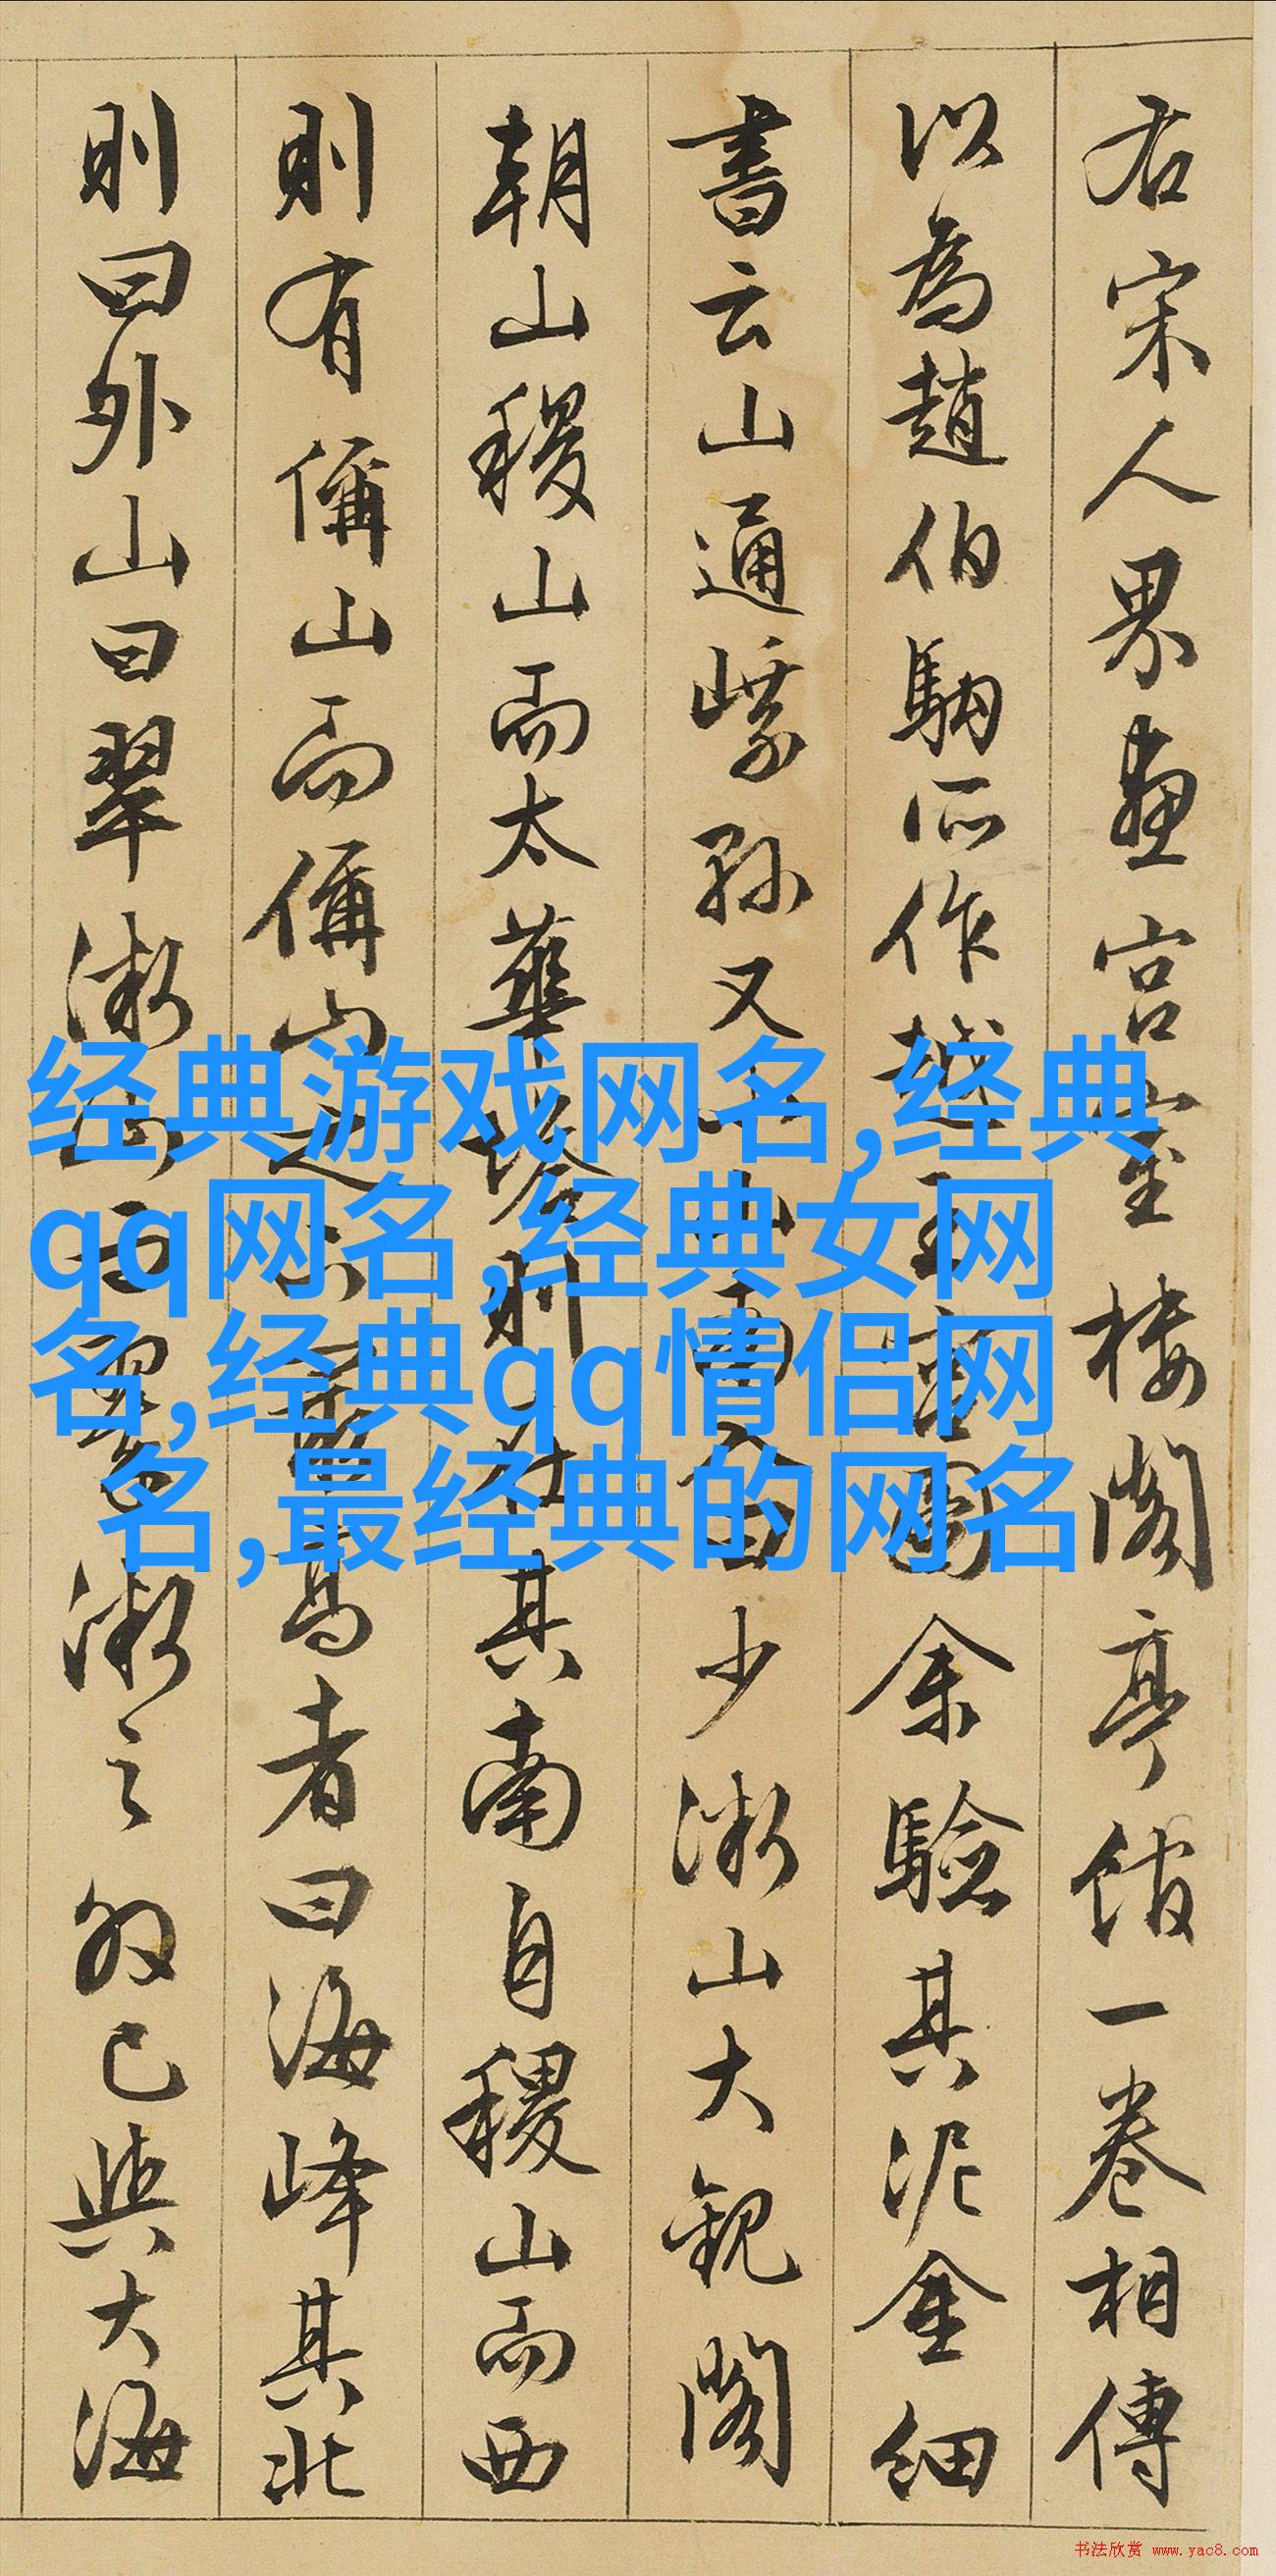 右宋人界畫宮室樓閣亭館一卷相傳
以為趙伯駒所作越王宮圖余驗其泥金細
書云山通
又
南
曰少微山大觀閣
朝山稷山而太華
則在其南自稷山而西
則有偁山而偁山之
最高者曰海峰其北
則曰外山曰翠微
曰翠微之
已與大海
经典游戏网名,经典
qq网名,经典女网
名,经典qq情侣网
名,最经典的网名
书法欣赏 www.yac8.com